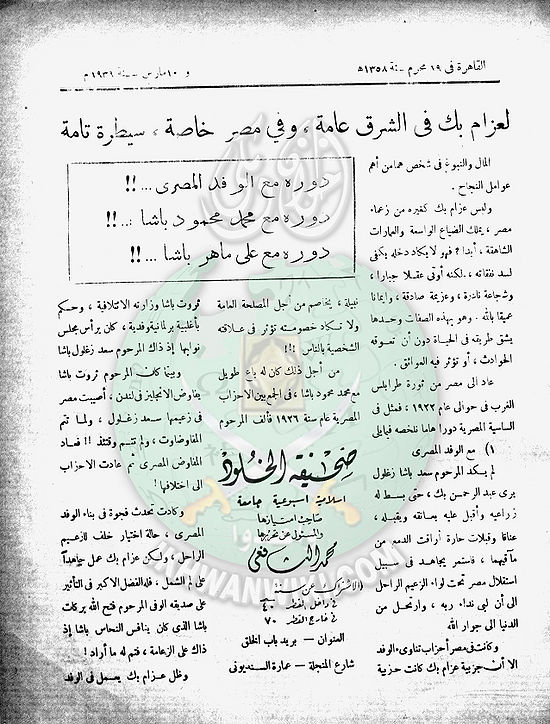 القاهرة فى ١٩ محرم سنة ١٣٥٨ ه
و ١٠ مارس سنة ١٩٣٩ م
لعزام بك فى الشرق عامة ، وفي مصر خاصة ، سيطرة تامة
دوره مع الوفد المصرى ... !!
دوره مع محمد محمود باشا ... !!
دوره مع على ماهر باشا ... !!
المال والنبوغ فى شخص هما من أهم
عوامل النجاح .
وليس عزام بك كغيره من زعماء
مصر ، يملك الضياع الواسعة والعمارات
الشاهقة ، أبدا ؟ فهو لا يكاد دخله يكفى
لسد نفقاته ، لكنه أوتى عقلا جبارا ،
وشجاعة نادرة ، وعزيمة صادقة ، وإيمانا
عميقا بالله . وهو بهذه الصفات وحدها
يشق طريقه فى الحياة دون أن تعوقه
الحوادث ، أو تؤثر فيه العوائق .
عاد الى مصر من ثورة طرابلس
الغرب فى حوالى عام ١٩٢٢ ، فمثل فى
السياسة المصرية دورا هاما نلخصه فيما يلى
١) مع الوفد المصرى
لم يكد المرحوم سعد باشا زغلول
يرى عبد الرحمن بك ، حتى بسط له
زراعيه وأقبل عليه يعانقه ويقبله ،
عناقا وقبلات حارة أراقت الدمع من
مآقيهما ، فاستمر يجاهد فى سبيل
استقلال مصر تحت لواء الزعيم الراحل
الى أن لبى نداء ربه ، وارتحل من
الدنيا الى جوار الله
وكانت فى مصر أحزاب تناوىء الوفد
الا أن حزبية عزام بك كانت حزبية
نبيلة ، يخاصم من أجل المصلحة العامة
ولا تكاد خصومته تؤثر فى علاقاته
الشخصية بالناس !!!
من أجل ذلك كان له باع طويل
مع محمد محمود باشا ، فى الجمع بين الاحزاب
المصرية عام سنة ١٩٢٦ فألف المرحوم
صحيفة الخلود
اسلامية اسبوعية جامعة
صاحب امتيازها
والمسئول عن تحريرها
محمد الشافعى
الاشتراك عن سنة
فى داخل القطر ٤٠
فى خارج القطر ٧٠
العنوان — بريد باب الخلق
شارع المنجلة — عمارة السنديونى
ثروت باشا وزارته الائتلافية ، وحكم
بأغلبية برلمانية وفدية ، كان يرأس مجلس
نوابها إذ ذاك المرحوم سعد زغلول باشا
وبينا كان المرحوم ثروت باشا
يفاوض الانجليز فى لندن ، أصيبت مصر
فى زعيمها سعد زغلول ، ولما تتم
المفاوضات ، ولم تتسم وقتئذ !! فعاد
المفاوض المصرى ثم عادت الاحزاب
الى اختلافها !
وكادت تحدث فجوة فى بناء الوفد
المصرى ، حالة اختيار خلف للزعيم
الراحل ، ولكن عزام بك عمل جاهداً
على لم الشمل ، فله الفضل الاكبر فى التأثير
على صديقه الوفى المرحوم فتح الله بركات
باشا الذى كان ينافس النحاس باشا إذ
ذاك على الزعامة ، فتم له ما أراد !
وظل عزام بك يعمل فى الوفد
IKHWANWIKI.COM